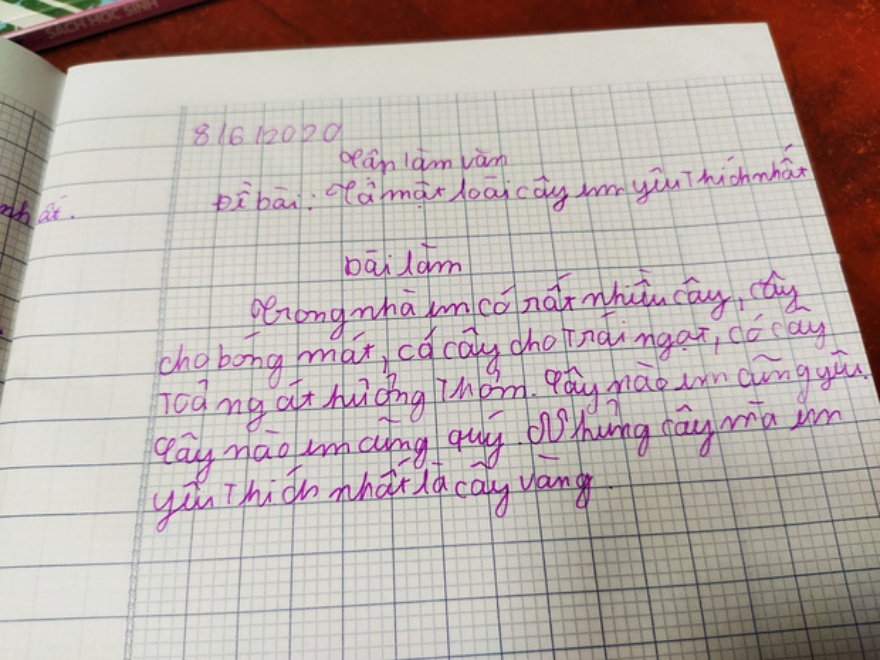 SÁCH HỌC SINH
8/6/2020
Tập làm văn
nhất.
Đề bài: Tả một loài cây em yêu thích nhất
bài làm
Trong nhà em có rất nhiều cây, cây
cho bóng mát, có cây cho trái ngọt, có cây
toả ngát hương thơm. Cây nào em cũng yêu.
Cây nào em cũng quý. Nhưng cây mà em
yêu thích nhất là cây vàng.